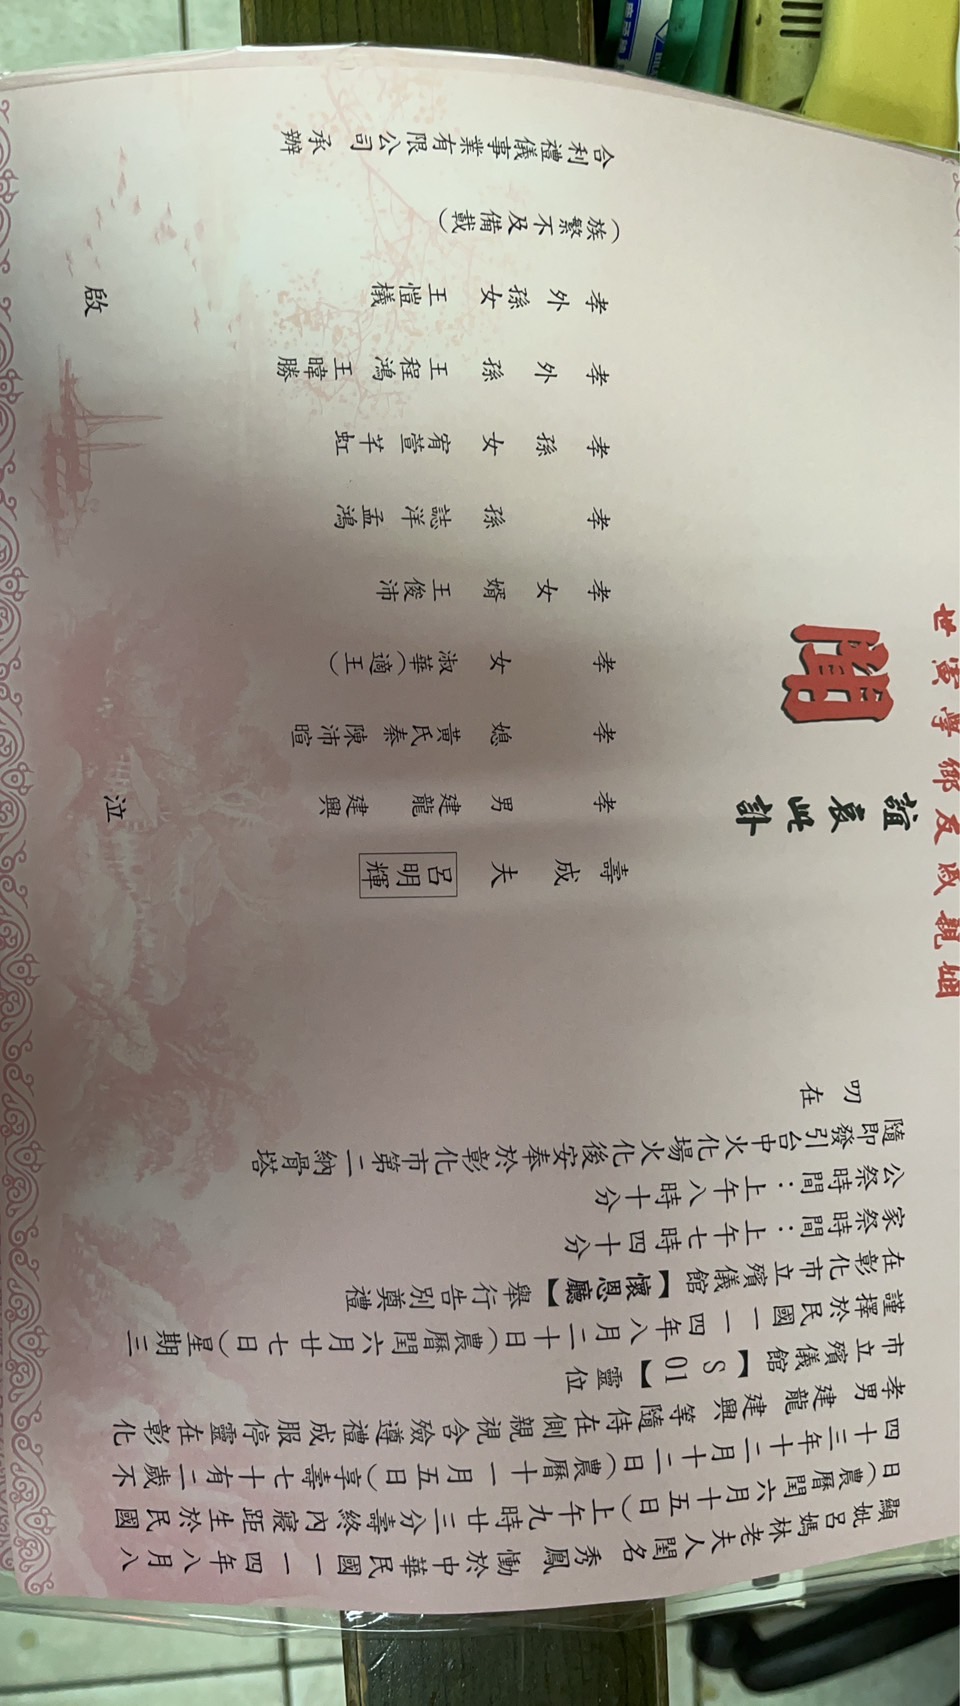 顯妣呂媽林老夫人閨名秀鳳慟於中華民國一一四年八月八
日(農曆閏六月十五日)上午九時廿三分壽終內寢距生於民國
四十三年十二月十二日(農曆十一月五日)享壽七十有二歲不
孝男建龍 建興等隨侍在側親視含殮遵禮成服停靈在彰化
市立殯儀館【S 01】靈位
謹擇於民國一一四年八月二十日(農曆閏六月廿七日)星期三
在彰化市立殯儀館【懷恩廳】舉行告別奠禮
家祭時間：上午七時四十分
公祭時間：上午八時十分
隨即發引台中火化場火化後安奉於彰化市第二納骨塔
叨在
姻親戚友鄉學寅世
誼哀此訃
聞
壽成夫 呂明輝
孝男 建龍 建興
孝媳 黃氏秦 陳沛暄
孝女 淑華(適王)
孝女婿 王俊沛
孝孫 誌洋 孟鴻
孝孫女 宥萱 芊虹
孝外孫 王程鴻 王暐勝
孝外孫女 王愷檥
泣啟
(族繁不及備載)
合利禮儀事業有限公司 承辦